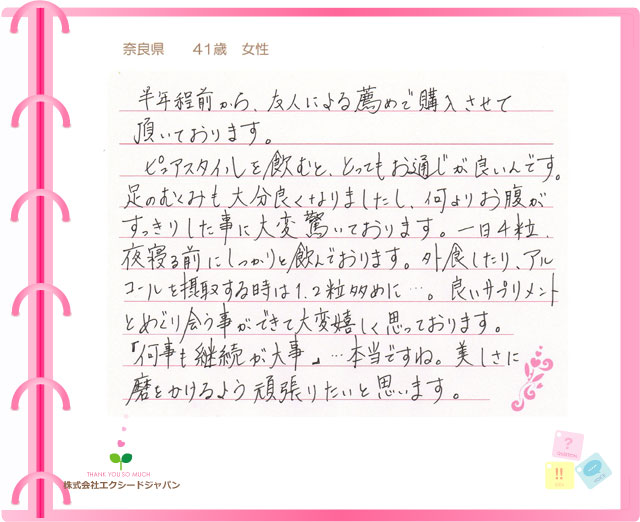 奈良県　41歳　女性
半年程前から、友人による薦めで購入させて
頂いております。
ピュアスタイルを飲むと、とってもお通じが良いんです。
足のむくみも大分良くなりましたし、何よりお腹が
すっきりした事に大変驚いております。一日4粒、
夜寝る前にしっかりと飲んでおります。外食したり、アル
コールを摂取する時は1.2粒多めに…。良いサプリメント
とめぐり会う事ができて大変嬉しく思っております。
「何事も継続が大事」…本当ですね。美しさに
磨をかけるよう頑張りたいと思います。
THANK YOU SO MUCH
株式会社エクシードジャパン
?
!!